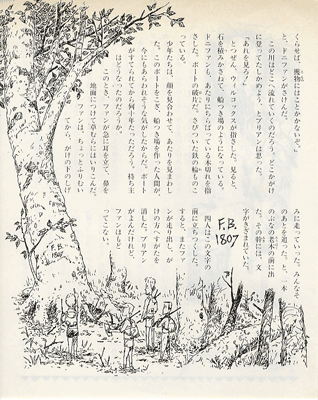 くらせば、獲物にはことかかないぞ。」
と、ドニファンがさけんだ。
この川はどこへ流れていくのだろう、どこかがけ
に登ってたしかめよう、とブリアンは思った。
「あれを見ろ!」
とつぜん、ウィルコックスが指さした。見ると、
石を積みかさねて、船つき場のようになっている。
ドニファンも、あたりにちらばっている木切れを指
さした。ボートの破片だ。さびついた鉄の輪ものこ
っている。
少年たちは、顔を見合わせて、あたりを見まわし
た。このボートをこぎ、船つき場を作った人間が、
今にもあらわれそうな気がしたからだ。ボート
がすてられてから何十年たっただろう。持ち主
はどうなったのだろうか。
このとき、ファンが急に耳を立て、鼻を
地面につけて草むらにはいりこんだ。
ファンは、ちょっとふりむい
てから、がけの下のしげ
みに走っていった。みんなそ
のあとを追った。と、一本
のぶなの老木の前に出
た。その幹には、文
字がきざまれていた。
F.B.
1807
四人はこの文字の
前に立ちつくした。
すると、またファン
が走り出し、が
けの方へすがたを
消した。ブリアン
がよんだけれど、
ファンはもど
ってこない。
F.B
1807